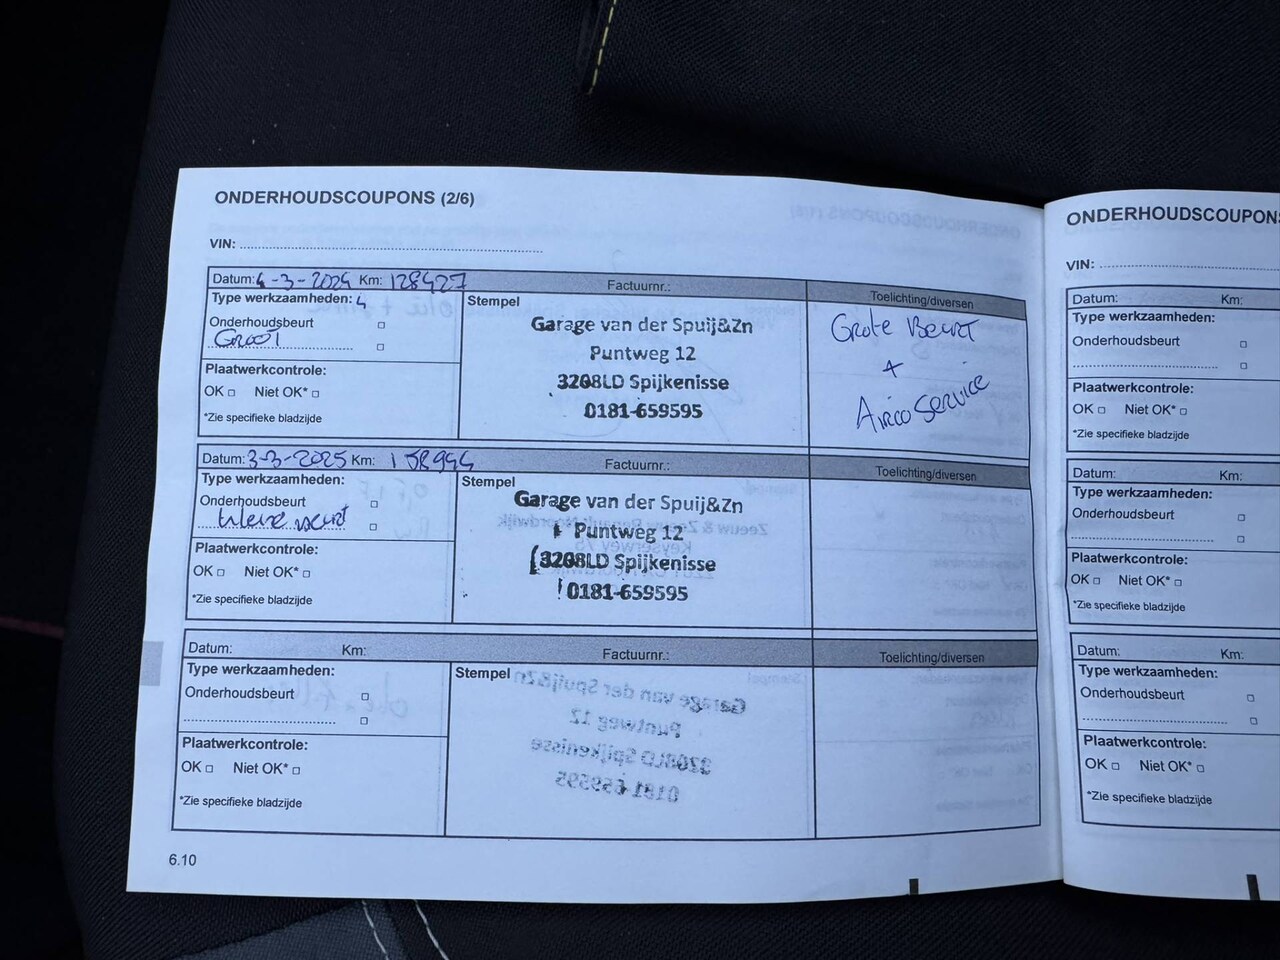 ONDERHOUDSCOUPONS (2/6)
VIN:
Datum: 4-3-2024 Km: 128427 Factuurnr.: Toelichting/diversen
Type werkzaamheden: 4
Onderhoudsbeurt
GROOT
Plaatwerkcontrole:
OK Niet OK*
*Zie specifieke bladzijde
Stempel
Garage van der Spuij&Zn
Puntweg 12
3208LD Spijkenisse
0181-659595
Grote Beurt
+
Airco Service
Datum: 3-3-2025 Km: 158944 Factuurnr.: Toelichting/diversen
Type werkzaamheden:
Onderhoudsbeurt
kleine beurt
Plaatwerkcontrole:
OK Niet OK*
*Zie specifieke bladzijde
Stempel
Garage van der Spuij&Zn
Puntweg 12
3208LD Spijkenisse
0181-659595
Datum: Km: Factuurnr.: Toelichting/diversen
Type werkzaamheden:
Onderhoudsbeurt
Plaatwerkcontrole:
OK Niet OK*
*Zie specifieke bladzijde
Stempel
Garage van der Spuij&Zn
Puntweg 12
3208LD Spijkenisse
0181-659595
6.10
ONDERHOUDSCOUPONS
VIN:
Datum: Km:
Type werkzaamheden:
Onderhoudsbeurt
Plaatwerkcontrole:
OK Niet OK*
*Zie specifieke bladzijde
Datum: Km:
Type werkzaamheden:
Onderhoudsbeurt
Plaatwerkcontrole:
OK Niet OK*
*Zie specifieke bladzijde
Datum: Km:
Type werkzaamheden:
Onderhoudsbeurt
Plaatwerkcontrole:
OK Niet OK*
*Zie specifieke bladzijde